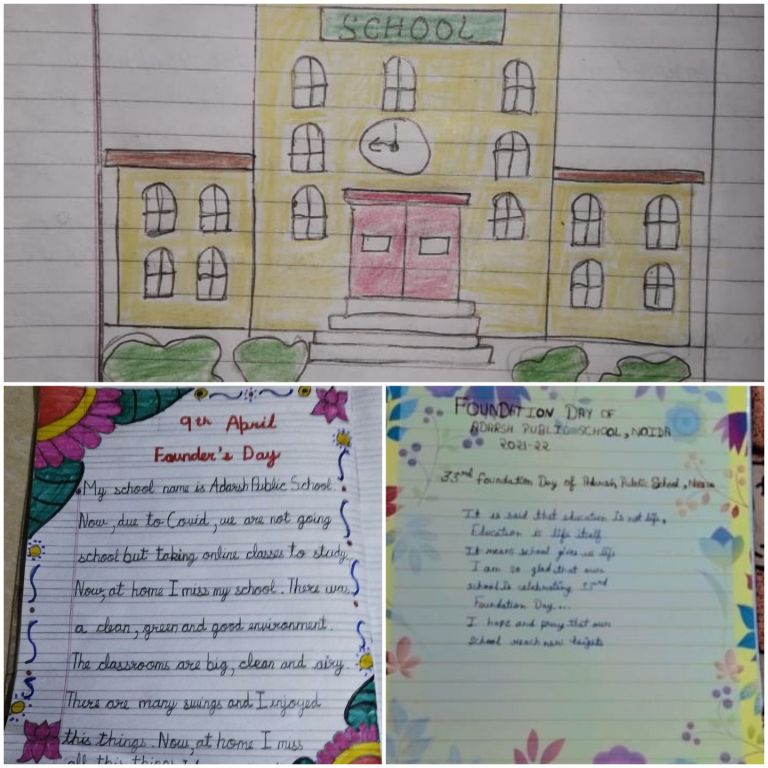 SCHOOL
9th April
Founder's Day
My school name is Adarsh Public School.
Now, due to Covid, we are not going
school but taking online classes to study.
Now, at home I miss my school. There was
a clean, green and good environment.
The classrooms are big, clean and airy.
There are many swings and I enjoyed
this things. Now, at home I miss
all this things
FOUNDATION DAY OF
ADARSH PUBLIC SCHOOL, NOIDA
2021-22
33rd Foundation Day of Adarsh Public School, Noida
It is said that education is not life,
Education is life itself
It means school gives us life
I am so glad that our
school is celebrating 33rd
Foundation Day...
I hope and pray that our
school reach new heights